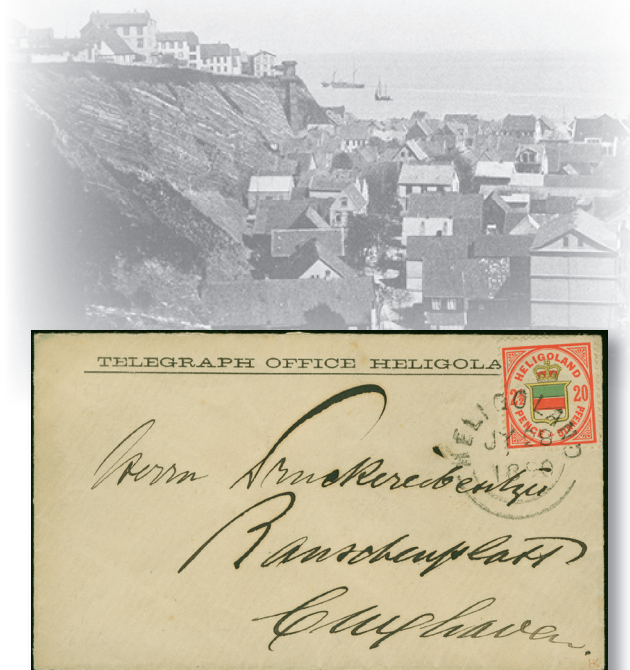 TELEGRAPH OFFICE HELIGOLA
HELIGOLAND
20
PFENNIG
PENCE
HELIGOLAND
JY
Herrn Druckereibesitzer
Rauschenplatt
Cuxhaven.